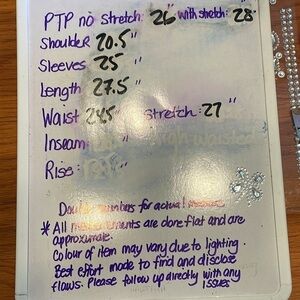 PTP no stretch: 26" with stretch: 28"
Shoulder 20.5"
Sleeves 25"
Length: 27.5"
Waist 24.5" stretch: 27"
Inseam:
Rise:
Double numbers for actual
* All measurements are done flat and are
approximate.
Colour of item may vary due to lighting.
Best effort made to find and disclose
flaws. Please follow up directly with any
issues